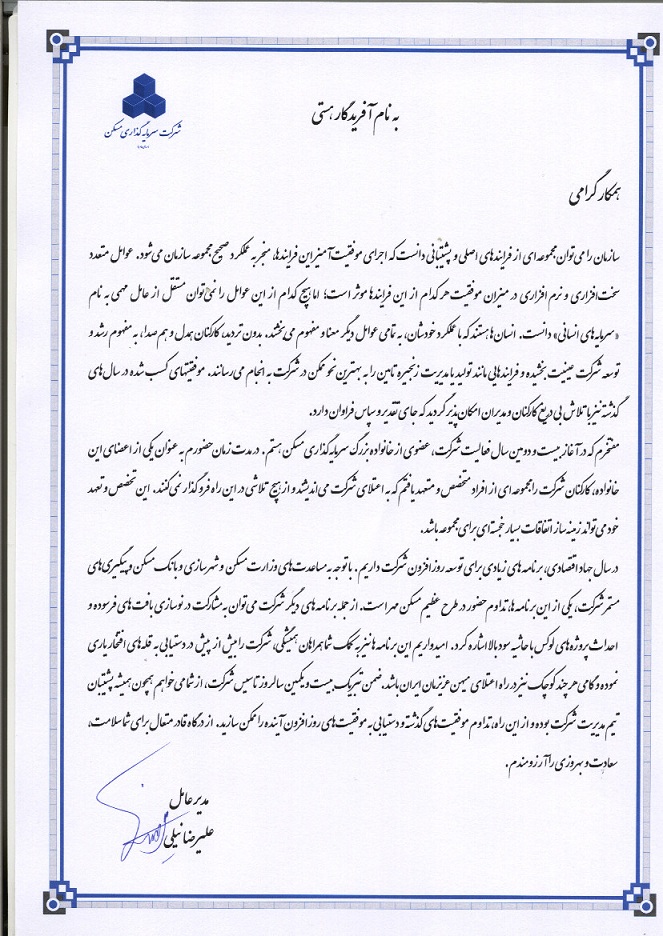 شرکت سرمایه‌گذاری مسکن
به نام آفریدگار هستی
همکار گرامی
سازمان را می‌توان مجموعه‌ای از فرایندهای اصلی و پشتیبانی دانست که اجرای موفقیت‌آمیز این فرایندها، منجر به عملکرد صحیح مجموعه سازمان می‌شود. عوامل متعدد
سخت‌افزاری و نرم افزاری در میزان موفقیت هر کدام از این فرایندها موثر است؛ اما هیچ کدام از این عوامل را نمی‌توان مستقل از عامل مهمی به نام
«سرمایه‌های انسانی» دانست. انسان‌ها هستند که با عملکرد خودشان، به تمامی عوامل دیگر معنا و مفهوم می‌بخشند. بدون تردید، کارکنان همدل و هم صدا، به مفهوم رشد و
توسعه شرکت عینیت بخشیده و فرایندهایی مانند تولید یا مدیریت زنجیره تامین را به بهترین نحو ممکن در شرکت به انجام می‌رسانند. موفقیتهای کسب شده در سال‌های
گذشته نیز با تلاش بی دریغ کارکنان و مدیران امکان پذیر گردید که جای تقدیر و سپاس فراوان دارد.
مفتخرم که در آغاز بیست و دومین سال فعالیت شرکت، عضوی از خانواده بزرگ سرمایه‌گذاری مسکن هستم. در مدت زمان حضورم به عنوان یکی از اعضای این
خانواده، کارکنان شرکت را مجموعه‌ای از افراد متخصص و متعهد یافتم که به اعتلای شرکت می‌اندیشند و از هیچ تلاشی در این راه فروگذار نمی‌کنند. این تخصص و تعهد
خود می‌تواند زمینه ساز اتفاقات بسیار خجسته‌ای برای مجموعه باشد.
در سال جهاد اقتصادی، برنامه‌های زیادی برای توسعه روزافزون شرکت داریم. با توجه به مساعدت‌های وزارت مسکن و شهرسازی و بانک مسکن و پیگیری‌های
مستمر شرکت، یکی از این برنامه‌ها، تداوم حضور در طرح عظیم مسکن مهر است. از جمله برنامه‌های دیگر شرکت می‌توان به مشارکت در نوسازی بافت‌های فرسوده و
احداث پروژه‌های لوکس با حاشیه سود بالا اشاره کرد. امیدواریم این برنامه‌ها نیز به کمک شما همراهان همیشگی، شرکت را بیش از پیش در دستیابی به قله‌های افتخار یاری
نموده و گامی هر چند کوچک نیز در راه اعتلای میهن عزیزمان ایران باشد. ضمن تبریک بیست و یکمین سالروز تاسیس شرکت، از شما می‌خواهم همچون همیشه پشتیبان
تیم مدیریت شرکت بوده و از این راه، تداوم موفقیت‌های گذشته و دستیابی به موفقیت‌های روزافزون آینده را ممکن سازید. از درگاه قادر متعال برای شما سلامت،
سعادت و بهروزی را آرزومندم.
مدیر عامل
علیرضا نیلی